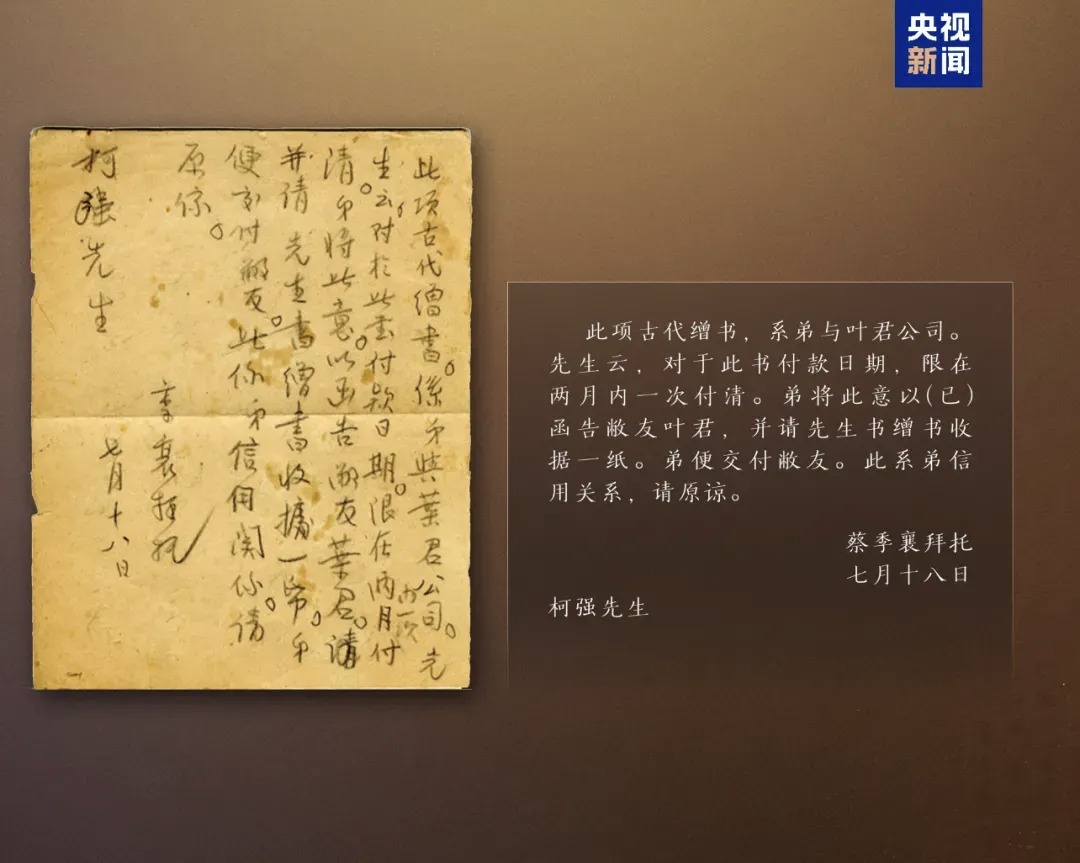 央视
新闻
此项古代缯書。係弟與葉君公司。先
生云，对於此書付款日期。限在兩月内一次付
清。弟将此意。以函告敝友葉君。請
并请先生書缯書收據一帋。弟
便交付敝友。此係弟信用関係。请
原谅。
季襄拜托
七月十八日
柯强先生
此项古代缯书，系弟与叶君公司。
先生云，对于此书付款日期，限在
两月内一次付清。弟将此意以(已)
函告敝友叶君，并请先生书缯书收
据一纸。弟便交付敝友。此系弟信
用关系，请原谅。
蔡季襄拜托
七月十八日
柯强先生